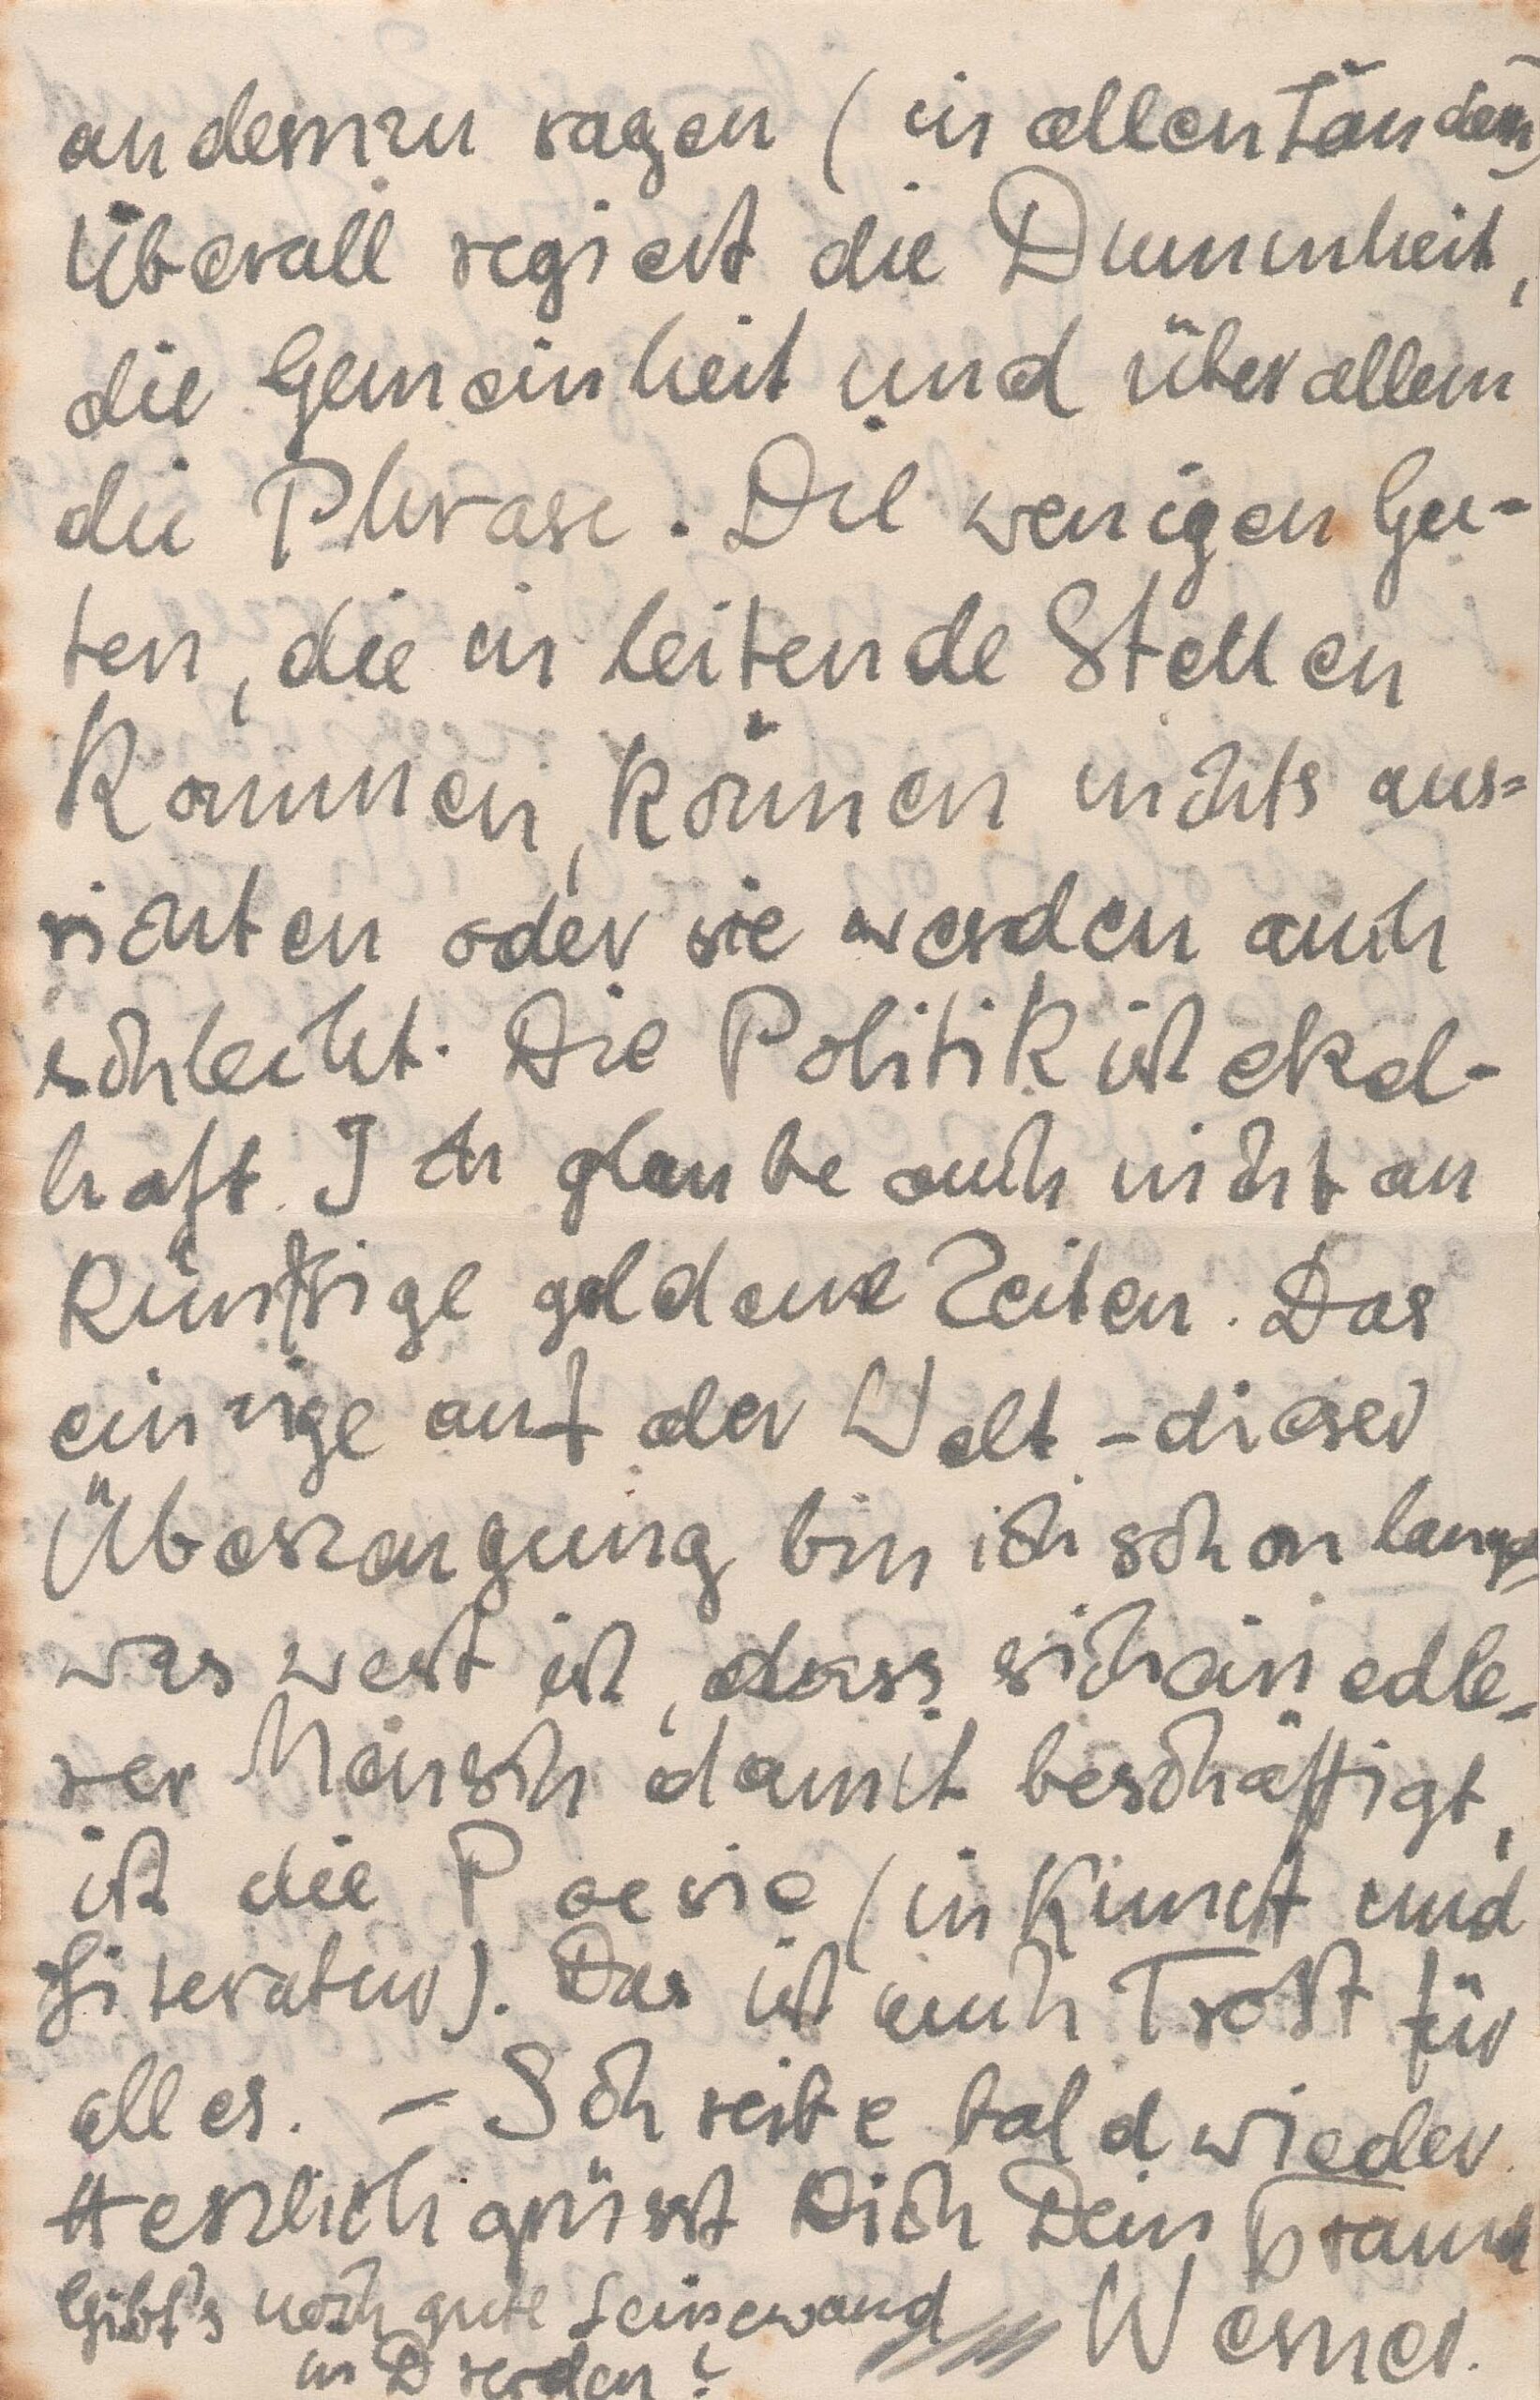 andern zu ragen (in allen Ländern)
Überall regiert die Dummheit,
die Gemeinheit und über allem
die Phrase. Die wenigen Gu-
ten, die in leitende Stellen
kommen, können nichts aus=
richten oder sie werden auch
schlecht. Die Politik ist ekel-
haft. Ich glaube auch nicht an
künftige goldene Zeiten. Das
einzige auf der Welt – dieser
Überzeugung bin ich schon lange
was wert ist, dass sich ein edle-
rer Mensch damit beschäftigt,
ist die Poesie (in Kunst und
Literatur). Das ist auch Trost für
alles. – Schreibe bald wieder.
Herzlich grüsst Dich Dein
Gibt's noch gute Leinewand Werner.
in Dresden?